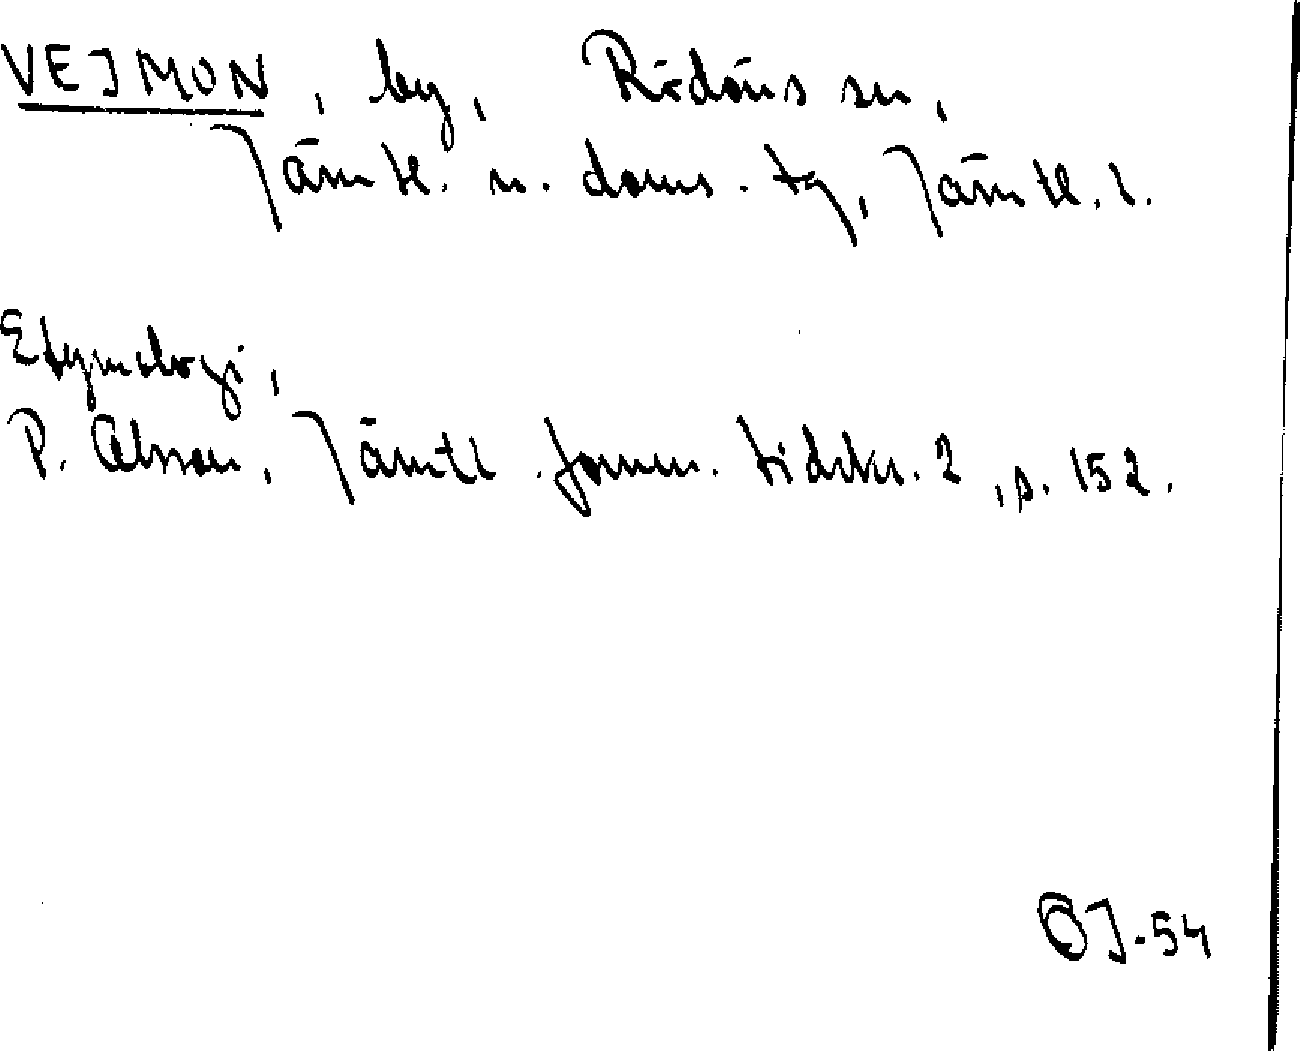 VEJMON, by, Rödöns sn,
Jämtl. n. doms. tg, Jämtl. l.
Etymologi,
P. Olsson, Jämtl. fornm. tidskr. 2, s. 152.
ÖJ-54